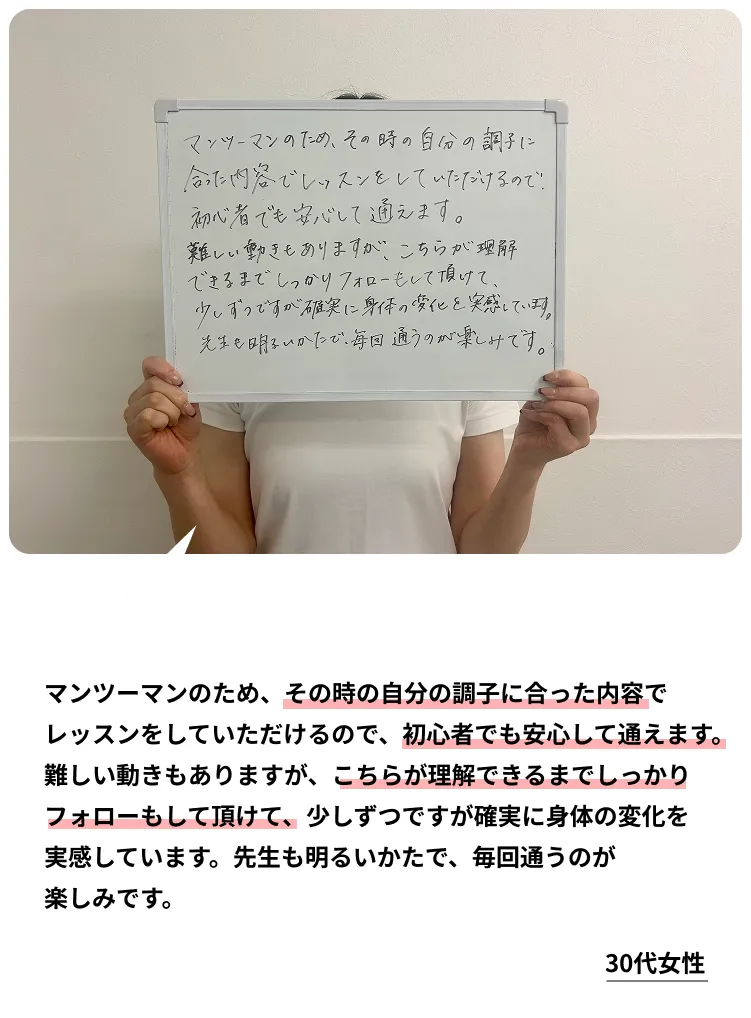 マンツーマンのため、その時の自分の調子に
合った内容でレッスンをしていただけるので、
初心者でも安心して通えます。
難しい動きもありますが、こちらが理解
できるまでしっかりフォローもして頂けて、
少しずつですが確実に身体の変化を実感しています。
先生も明るいかたで、毎回通うのが楽しみです。
マンツーマンのため、その時の自分の調子に合った内容で
レッスンをしていただけるので、初心者でも安心して通えます。
難しい動きもありますが、こちらが理解できるまでしっかり
フォローもして頂けて、少しずつですが確実に身体の変化を
実感しています。先生も明るいかたで、毎回通うのが
楽しみです。
30代女性